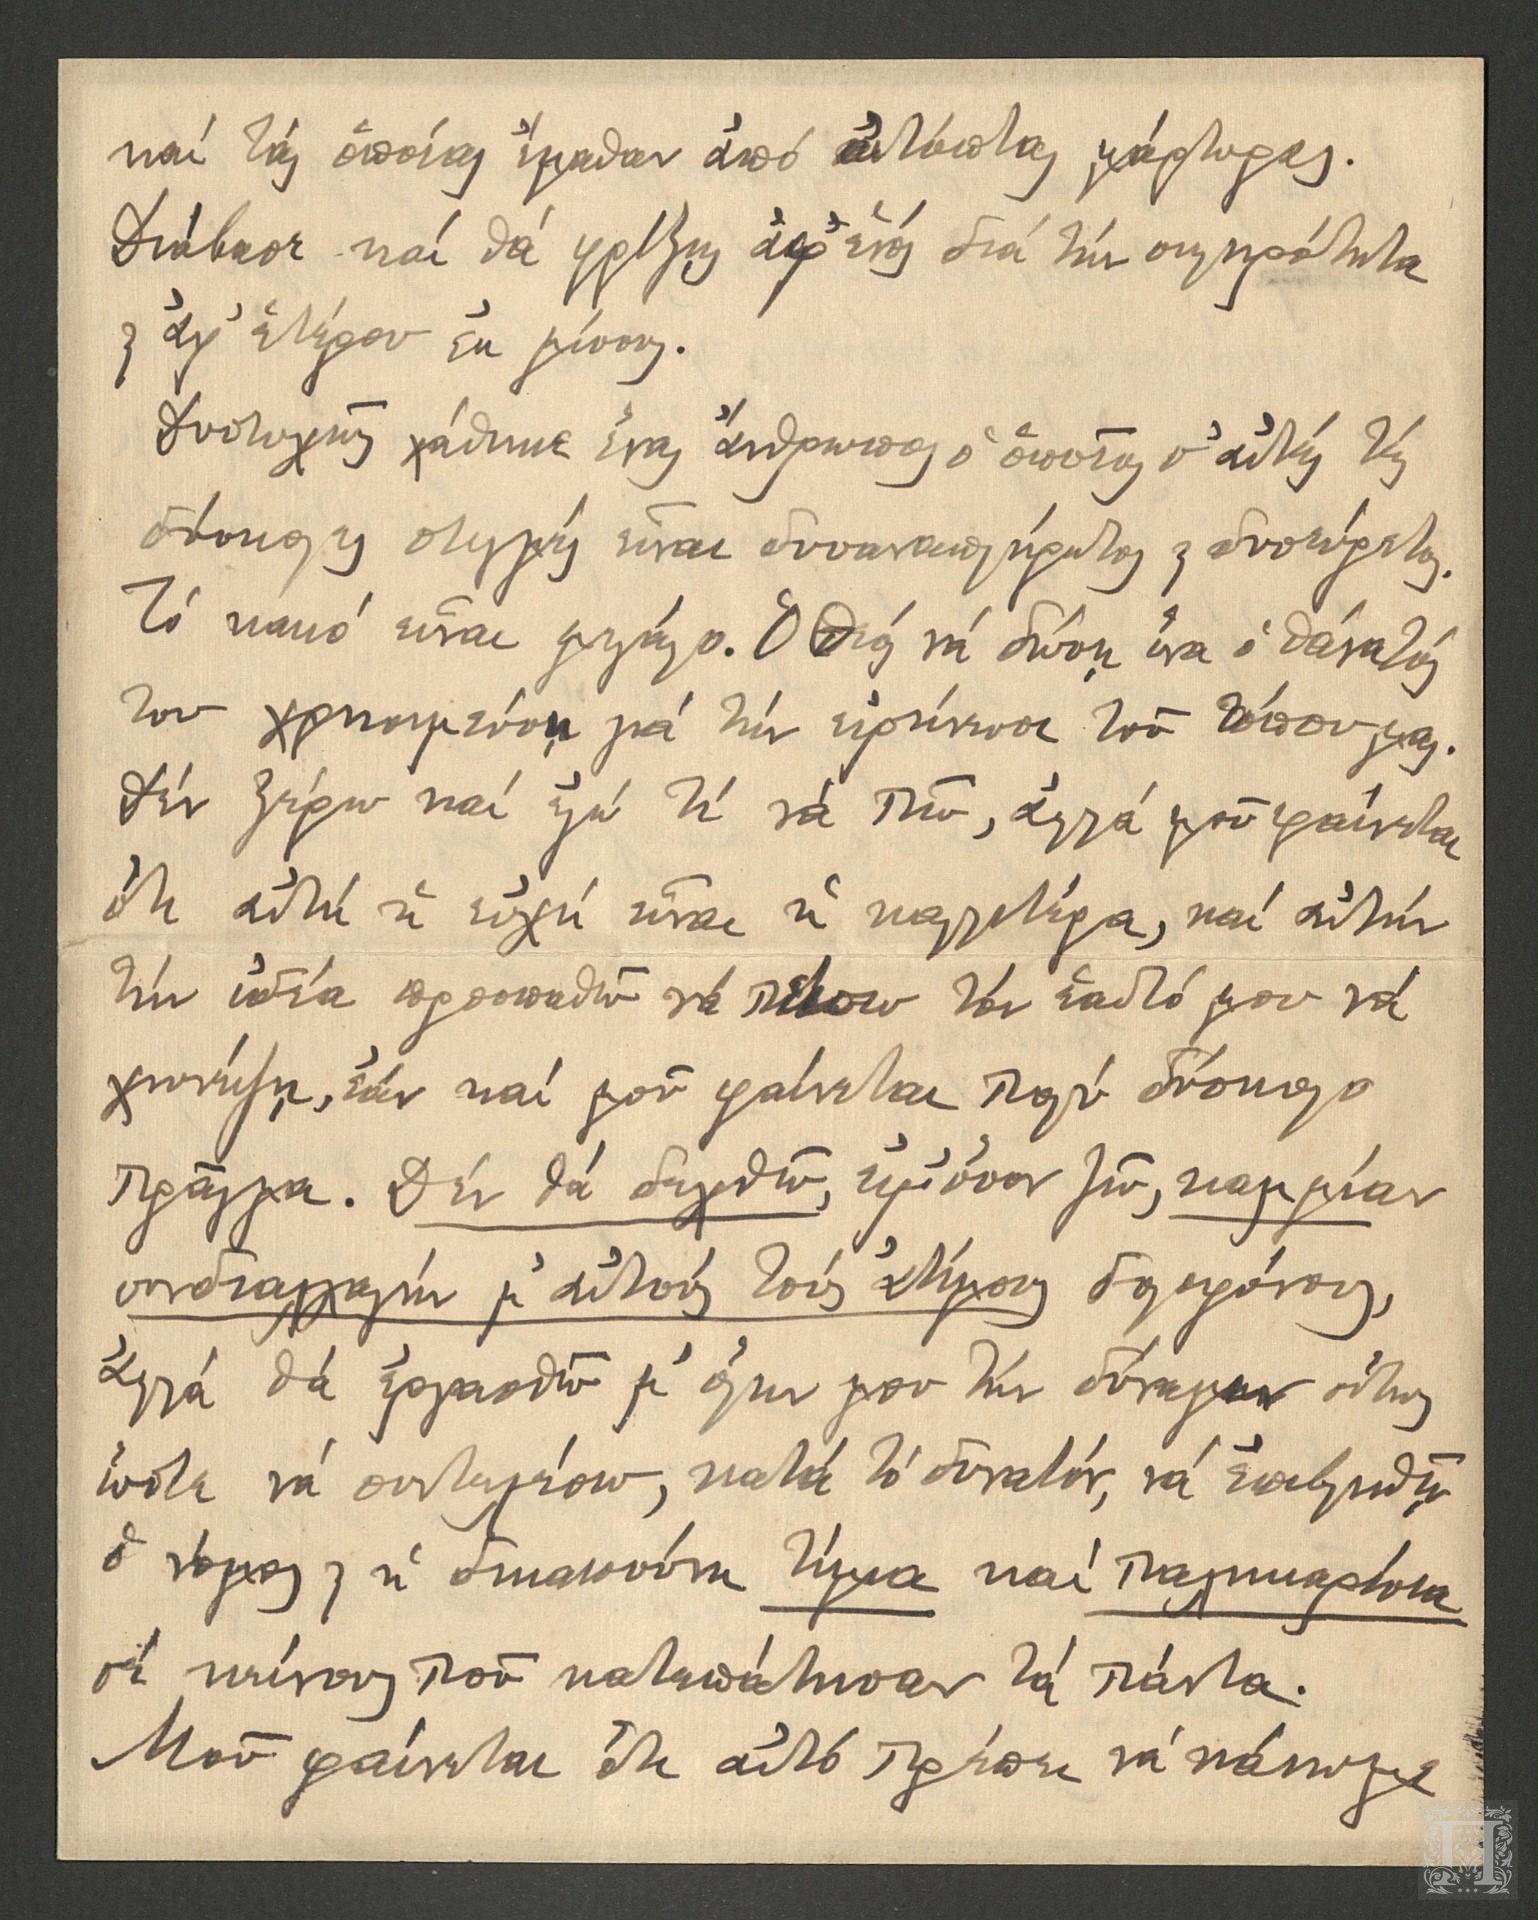 καί τάς ὁποίας ἔμαθαν ἀπό αὐτόπτας μάρτυρας.
Διάβασε καί θά φρίξῃς ἀφ' ἑνός διά τήν σκληρότητα
ϗ ἀφ' ἑτέρου ἐκ μίσους.
Δυστυχῶς χάθηκε ἕνας ἄνθρωπος ὁ ὁποῖος σ' αὐτές τίς
δύσκολες στιγμές εἶναι δυσαναπλήρωτος ϗ δυσεύρετος.
Τό κακό εἶναι μεγάλο. Ὁ Θεός νά δώσῃ ἵνα ὁ θάνατός
του χρησιμεύσῃ γιά τήν εἰρήνευσι τοῦ τόπου μας.
Δέν ξέρω καί ἐγώ τί νά πῶ, ἀλλά μοῦ φαίνεται
ὅτι αὐτή ἡ εὐχή εἶναι ἡ καλλιτέρα, καί αὐτήν
τήν ἰδέα προσπαθῶ νά πείσω τόν ἑαυτό μου νά
χωνέψῃ, ἐάν καί μοῦ φαίνεται πολύ δύσκολο
πρᾶγμα. Δέν θά δεχθῶ, ἐφ' ὅσον ζῶ, καμμίαν
συνδιαλλαγήν μ' αὐτούς τούς ἀτίμους δολοφόνους,
ἀλλά θά ἐργασθῶ μ' ὅλην μου τήν δύναμιν οὕτως
ὥστε νά συντελέσω, κατά τό δυνατόν, νά ἐπιβληθῇ
ὁ νόμος ϗ ἡ δικαιοσύνη τίμια καί παλληκαρίσια
σέ κείνους ποῦ κατεπάτησαν τά πάντα.
Μοῦ φαίνεται ὅτι αὐτό πρέπει νά κάνωμε